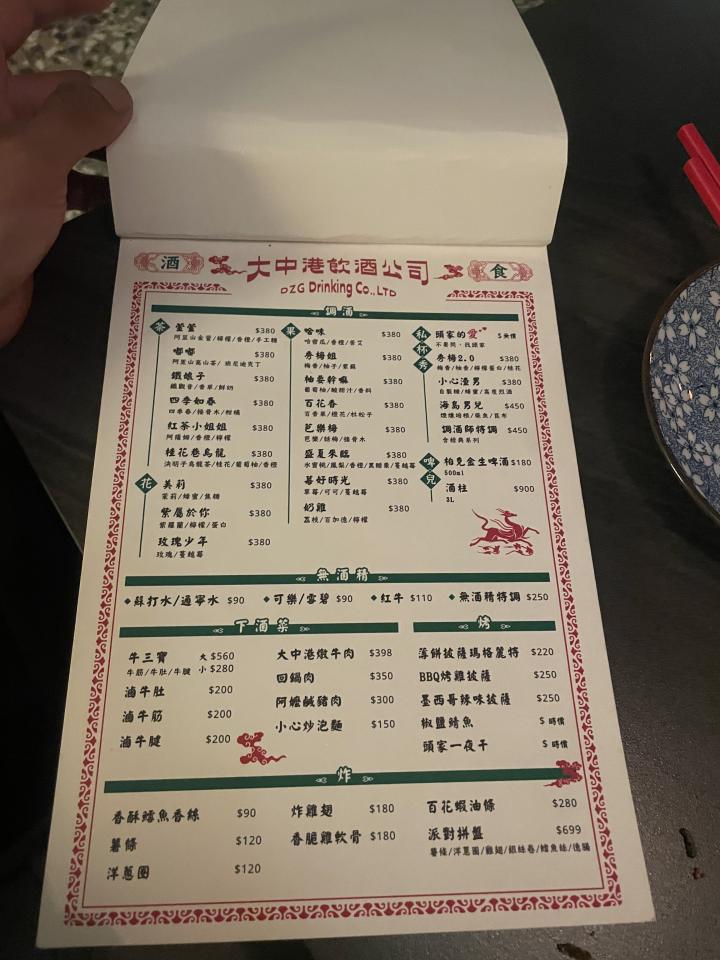 酒
大中港飲酒公司
食
DZG Drinking Co.,LTD
調酒
茶
萱萱 $380
阿里山金萱/檸檬/香橙/手工糖
嘟嘟 $380
阿里山高山茶/班尼迪克丁
鐵娘子 $380
鐵觀音/香草/鮮奶
四季如春 $380
四季春/接骨木/柑橘
紅茶小姐姐 $380
阿薩姆/香橙/檸檬
桂花巷烏龍 $380
決明子烏龍茶/桂花/葡萄柚/香橙
花
美莉 $380
茉莉/蜂蜜/焦糖
紫屬於你 $380
紫羅蘭/檸檬/蛋白
玫瑰少年 $380
玫瑰/蔓越莓
果
哈味 $380
哈密瓜/香橙/苦艾
夯梅姐 $380
梅香/柚子/紫蘇
柚要幹嘛 $380
葡萄柚/酸甜汁/香料
百花香 $380
百香果/橙花/杜松子
芭樂梅 $380
芭樂/話梅/接骨木
盛夏來臨 $380
水蜜桃/鳳梨/香橙/黑醋栗/蔓越莓
莓好時光 $380
草莓/可可/蔓越莓
奶雞 $380
荔枝/百加德/檸檬
私杯秀
頭家的愛 $無價
不要問,找頭家
夯梅2.0 $380
梅香/柚香/檸檬蛋白/桂花
小心渣男 $380
自製糖/蜂蜜/高度烈酒
海島男兒 $450
煙燻培根/柴魚/昆布
調酒師特調 $450
含經典系列
啤兒
柏克金生啤酒 $180
500ml
酒柱 $900
3L
無酒精
蘇打水/通寧水 $90
可樂/雪碧 $90
紅牛 $110
無酒精特調 $250
下酒菜
牛三寶 大 $560
牛筋/牛肚/牛腱 小 $280
滷牛肚 $200
滷牛筋 $200
滷牛腱 $200
大中港燉牛肉 $398
回鍋肉 $350
阿嬤鹹豬肉 $300
小心炒泡麵 $150
烤
薄餅披薩瑪格麗特 $220
BBQ烤雞披薩 $250
墨西哥辣味披薩 $250
椒鹽鯖魚 $時價
頭家一夜干 $時價
炸
香酥鱈魚香絲 $90
薯條 $120
洋蔥圈 $120
炸雞翅 $180
香脆雞軟骨 $180
百花蝦油條 $280
派對拼盤 $699
薯條/洋蔥圈/雞翅/銀絲卷/鱈魚絲/德腸